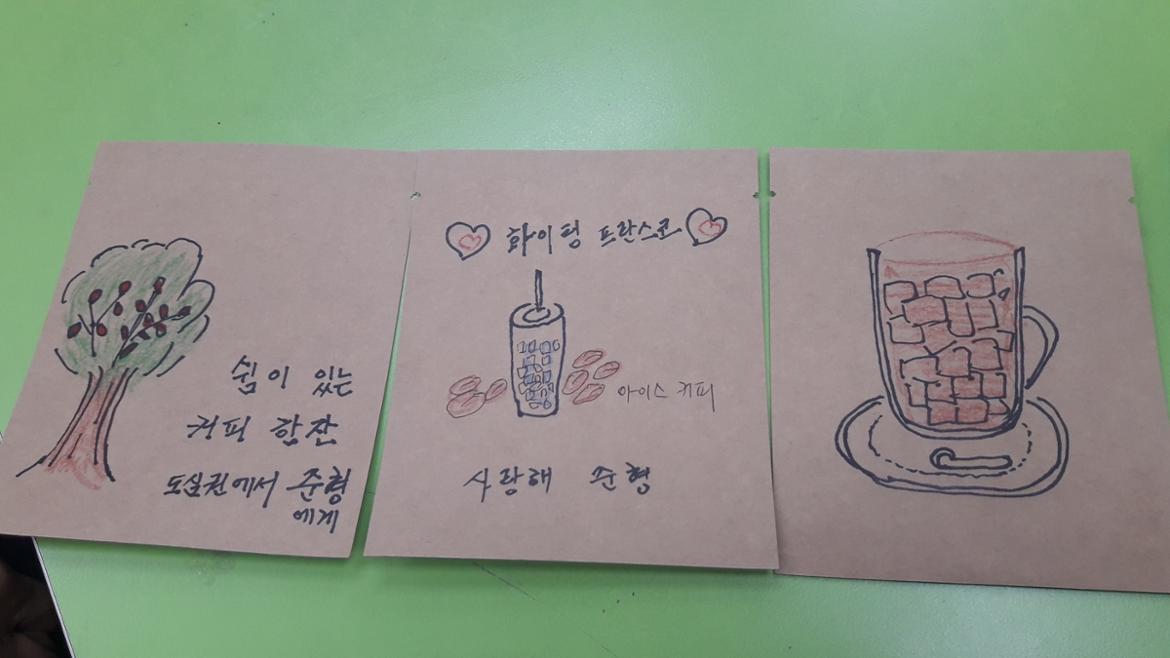 쉼이 있는
커피 한잔
도실권에서 준형
에게
화이팅 프란스코
아이스 커피
사랑해 준형